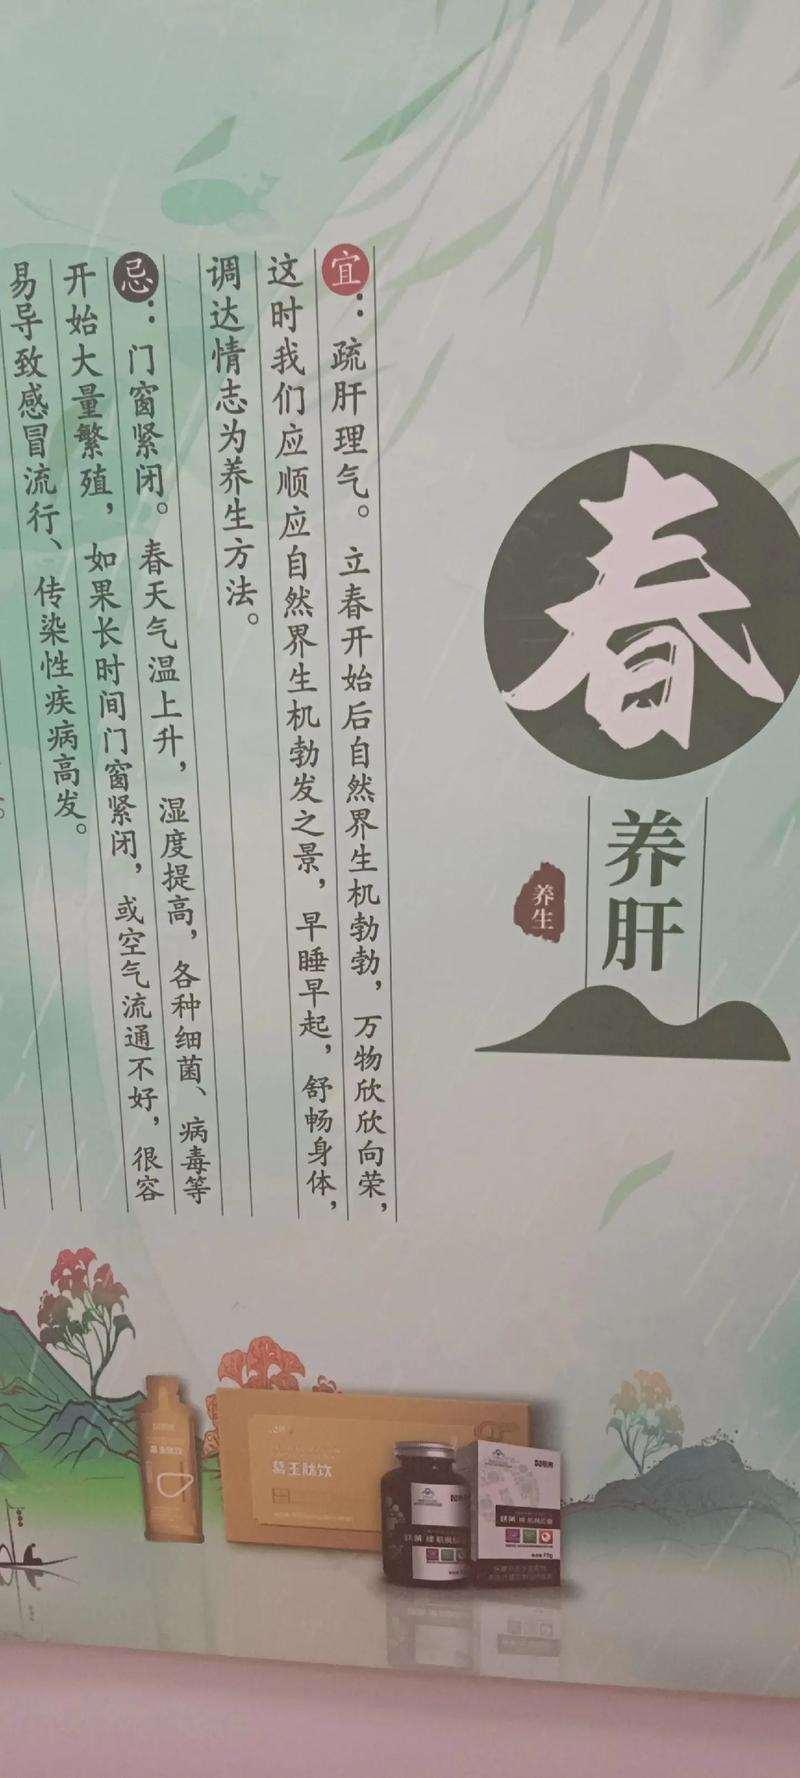 春
养肝
养生
宜：疏肝理气。立春开始后自然界生机勃勃，万物欣欣向荣，
这时我们应顺应自然界生机勃发之景，早睡早起，舒畅身体，
调达情志为养生方法。
忌：门窗紧闭。春天气温上升，湿度提高，各种细菌、病毒等
开始大量繁殖，如果长时间门窗紧闭，或空气流通不好，很容
易导致感冒流行、传染性疾病高发。
葛王肽饮